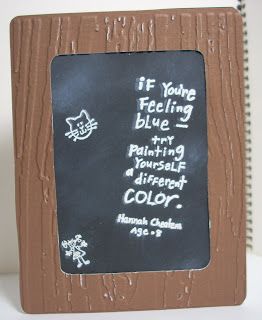 if You're
Feeling
blue —
try
Painting
YourseLF
a
different
COLOR.
Hannah Cheatem
Age - 8